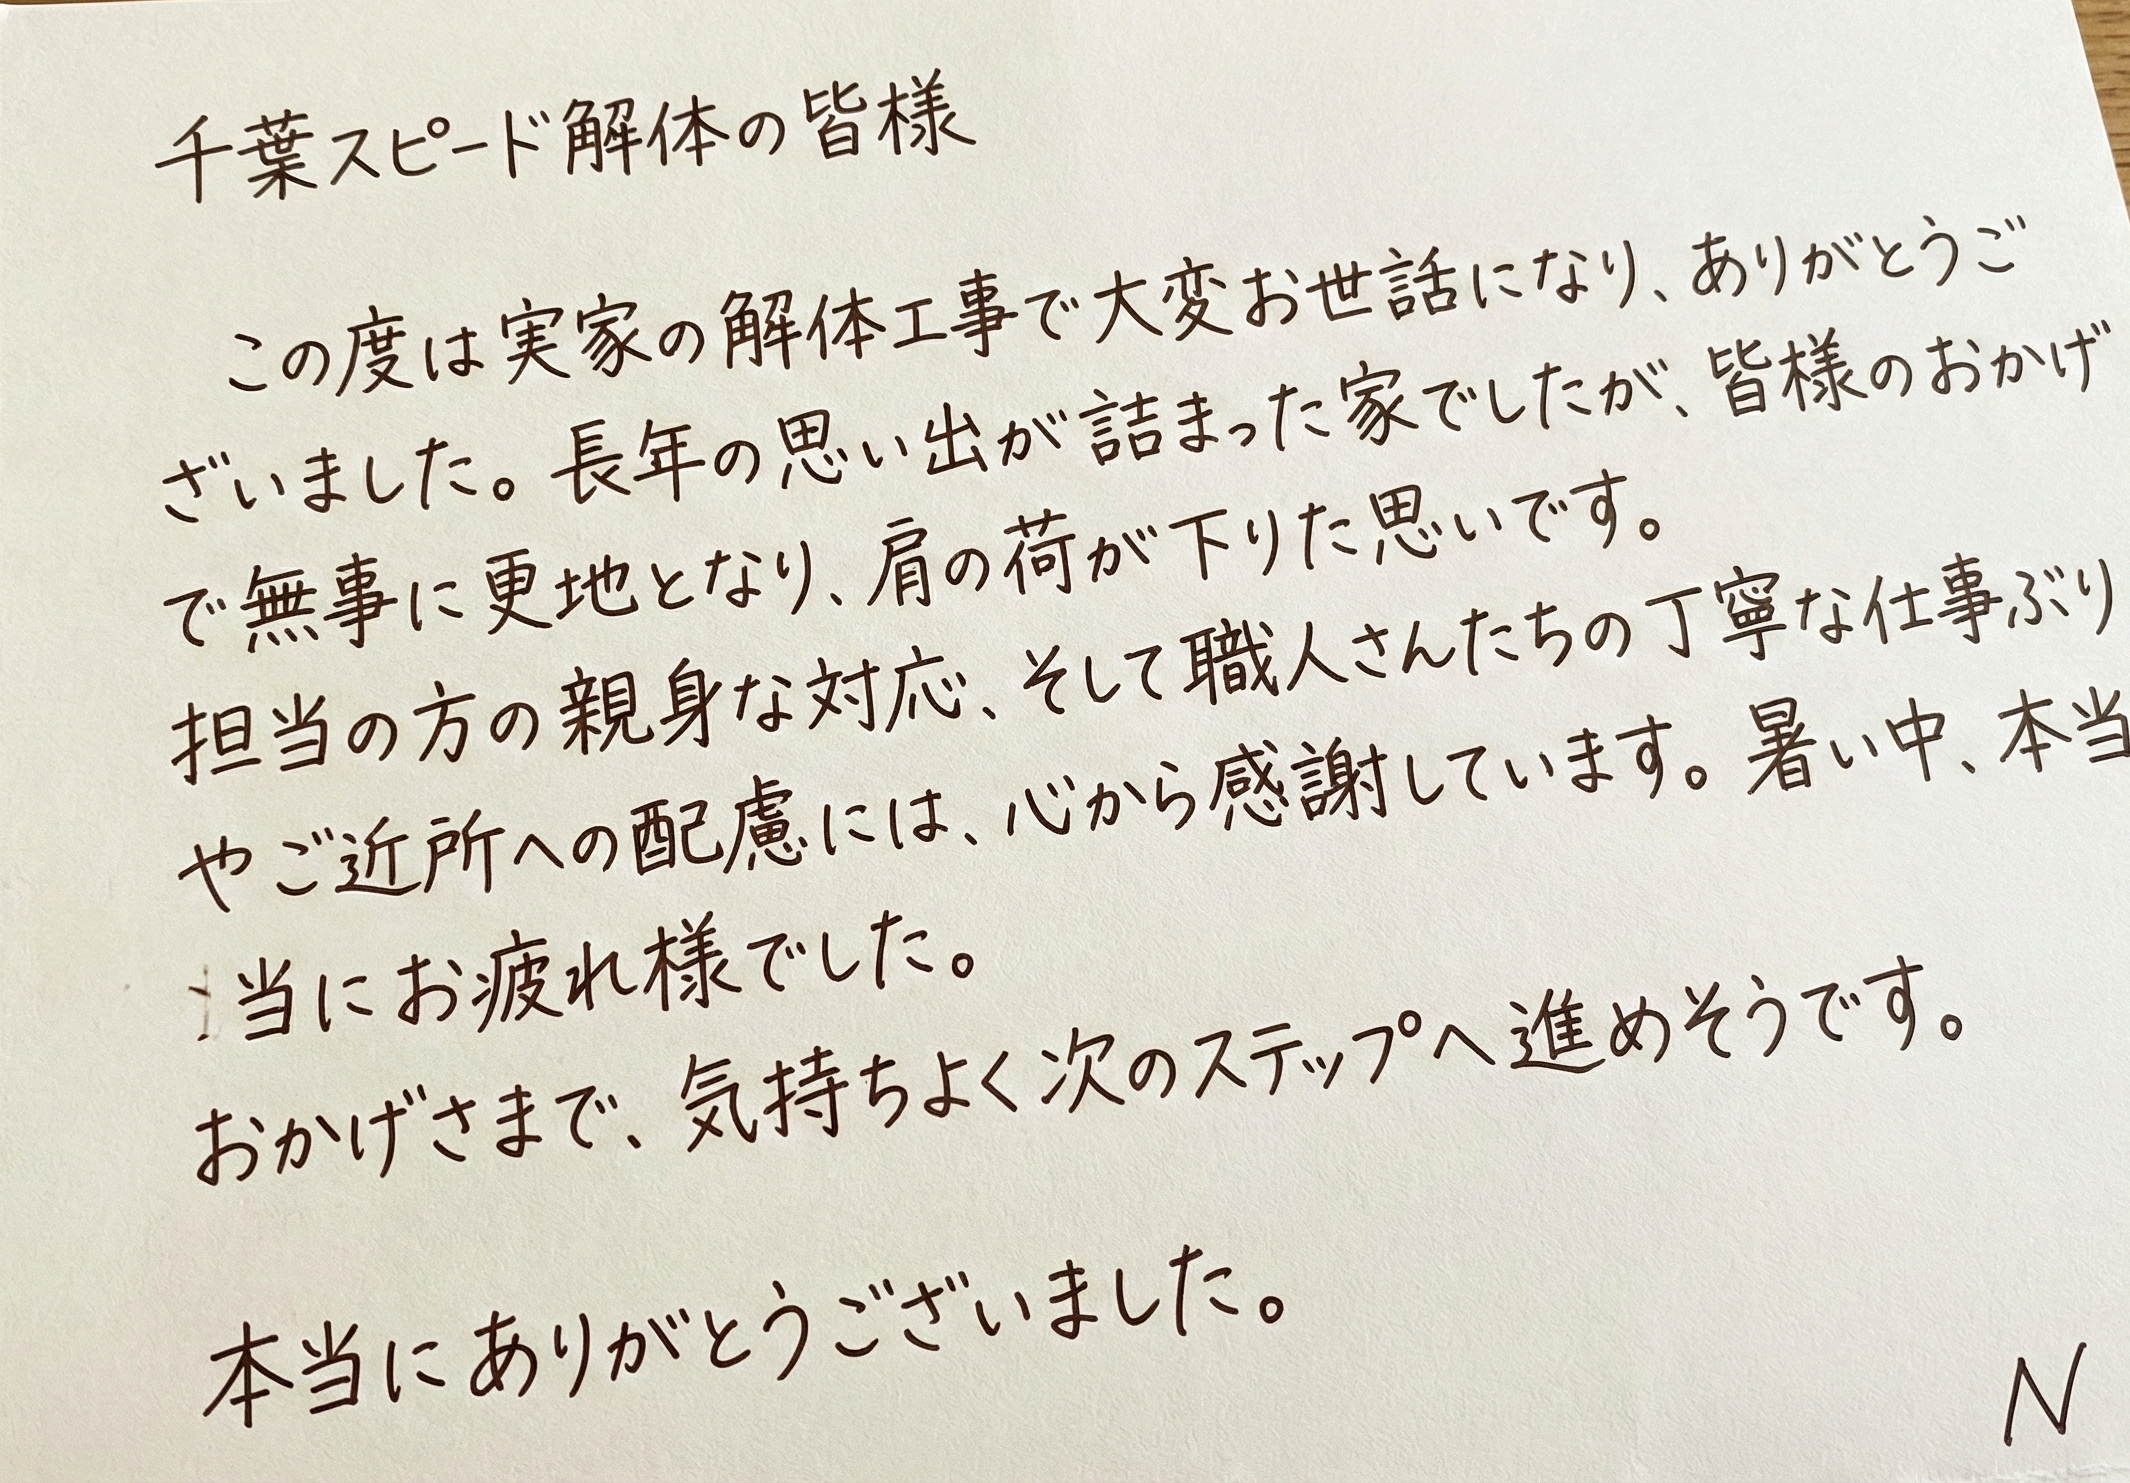 千葉スピード解体の皆様
この度は実家の解体工事で大変お世話になり、ありがとうご
ざいました。長年の思い出が詰まった家でしたが、皆様のおかげ
で無事に更地となり、肩の荷が下りた思いです。
担当の方の親身な対応、そして職人さんたちの丁寧な仕事ぶり
やご近所への配慮には、心から感謝しています。暑い中、本当
当にお疲れ様でした。
おかげさまで、気持ちよく次のステップへ進めそうです。
本当にありがとうございました。
N